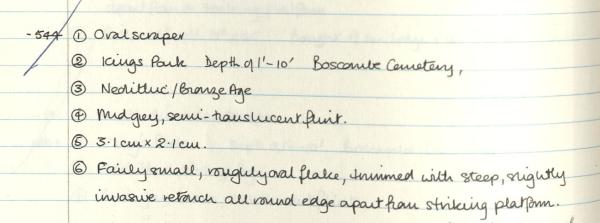 -544 ① Oval scraper
② Kings Park Depth of 1'-10' Boscombe Cemetery,
③ Neolithic/Bronze Age
④ Midgrey, semi-translucent flint.
⑤ 3.1cm x 2.1cm.
⑥ Fairly small, roughly oval flake, trimmed with steep, slightly
invasive retouch all round edge apart from striking platform.